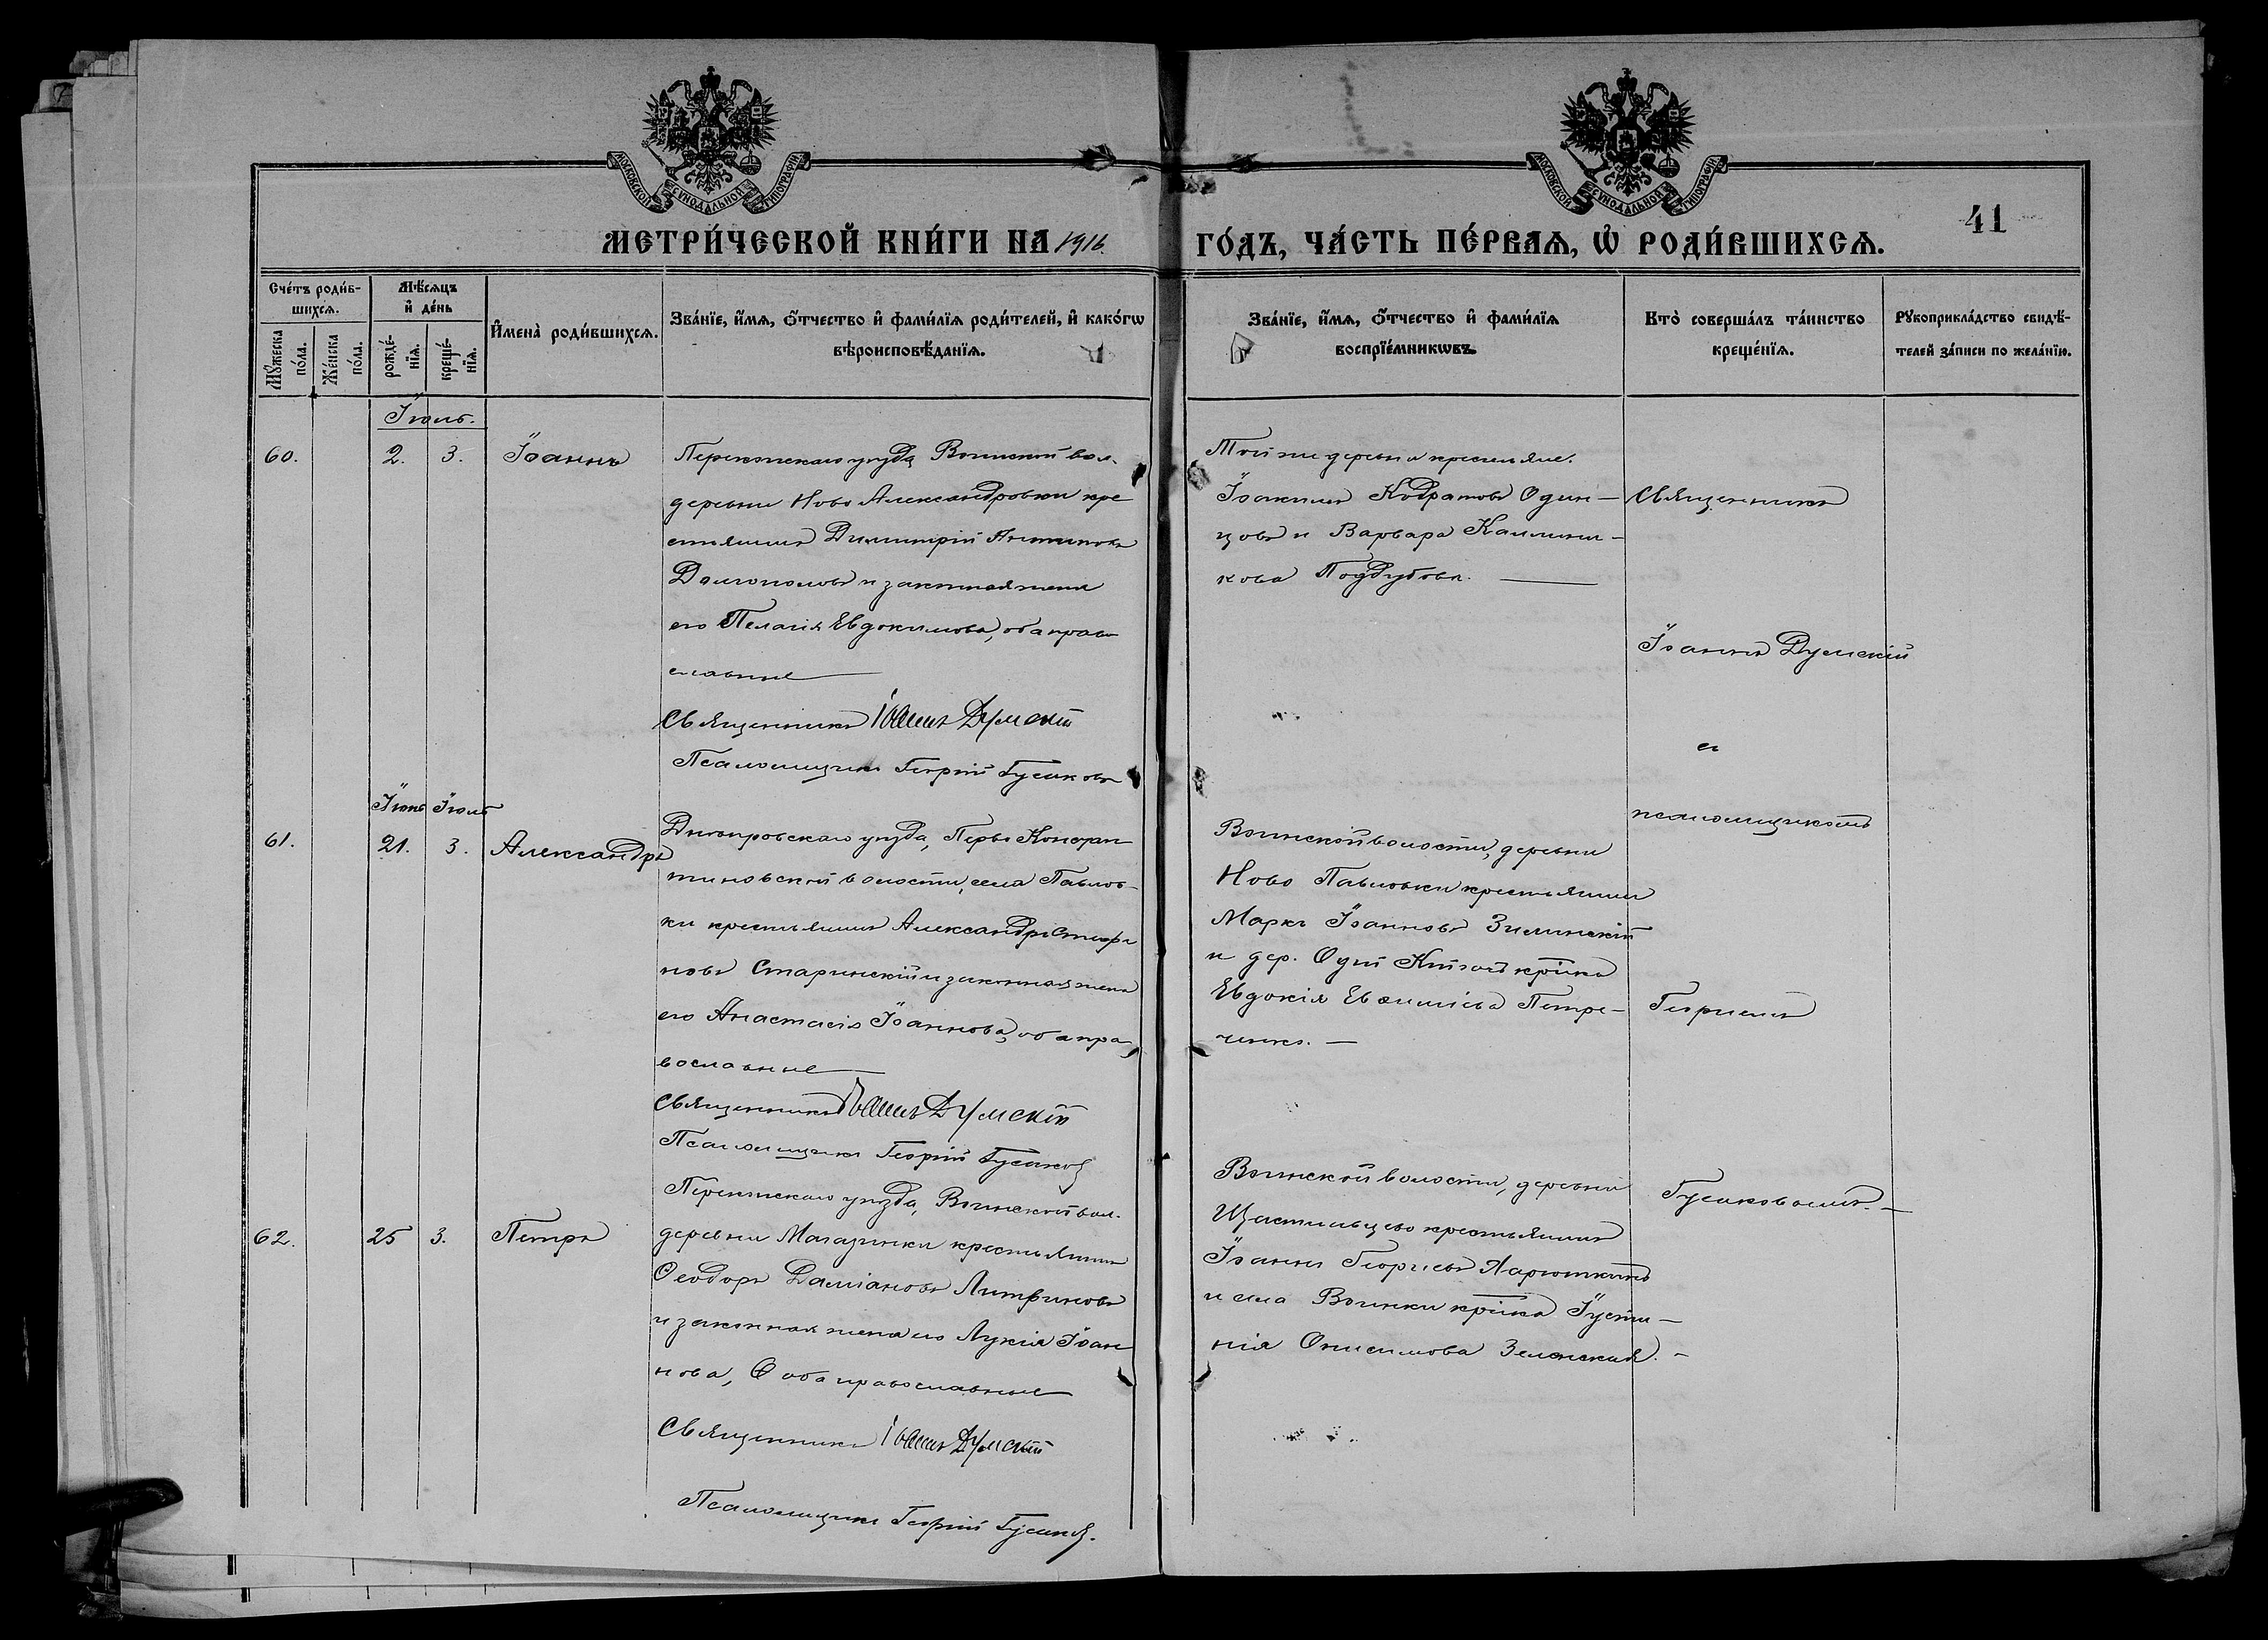 МОСКОВСКОЙ СѴНОДАЛЬНОЙ ТИПОГРАФІИ
МОСКОВСКОЙ СѴНОДАЛЬНОЙ ТИПОГРАФІИ
41
МЕТРИ́ЧЕСКОЙ КНИ́ГИ НА 1916. ГО́ДЪ, ЧА́СТЬ ПЕ́РВАѦ, Ѡ҆ РОДИ́ВШИХСѦ.
Сче́тъ роди́в-
шихсѧ.
Мꙋ́жеска по́ла.
Же́нска по́ла.
Мѣ́сѧцъ
и҆ де́нь
рожде́-
нїѧ.
креще́-
нїѧ.
И҆мена̀ роди́вшихсѧ.
Зва́нїе, и҆́мѧ, ѻ҆́тчество и҆ фами́лїѧ роди́телей, и҆ како́гѡ
вѣроисповѣ́данїѧ.
Зва́нїе, и҆́мѧ, ѻ҆́тчество и҆ фами́лїѧ
воспрїе́мникѡвъ.
Кто̀ соверша́лъ та́инство
креще́нїѧ.
Рꙋкоприкла́дство свидѣ́-
телей за́писи по жела́нїю.
Іюль.
60. 2. 3. Іоаннъ
Перекопскаго уѣзда Воинской вол.
деревни Ново Александровки кре
стьянинъ Димитрій Антиповъ
Долгополовъ и законная жена
его Пелагія Евдокимова, оба право
славные
Священникъ Іоаннъ Думскій
Псаломщикъ Георгій Гусаковъ
Той же деревни крестьяне.
Іоакимъ Кодратовъ Один-
цовъ и Варвара Каллини-
кова Поддубова.
Священникъ
Іоаннъ Думскій
съ
псаломщикомъ
Георгіемъ
Гусаковымъ.
Іюнь Іюль
61. 21. 3. Александръ
Днѣпровскаго уѣзда, Перво Констан
тиновской волости, села Павлов-
ки крестьянинъ Александръ Стефа
новъ Старинскій и законная жена
его Анастасія Іоаннова, оба пра
вославные
Священникъ Іоаннъ Думскій
Псаломщикъ Георгій Гусаковъ
Воинской волости, деревни
Ново Павловки крестьянинъ
Маркъ Іоанновъ Зилинскій
и дер. кр-ка
Евдокія Евѳиміева Петре-
ченко.
62. 25 3. Петръ
Перекопскаго уѣзда, Воинской вол.
деревни Магазинки крестьянинъ
Ѳеодоръ Даміановъ Литвиновъ
и законная жена его Лукія Іоан
нова, оба православные
Священникъ Іоаннъ Думскій
Псаломщикъ Георгій Гусаковъ.
Воинской волости, деревни
Щастливцево крестьянинъ
Іоаннъ Георгіевъ Ларюшкинъ
и села Воинки кр-ка Іусти-
нія Онисимова Зеленская.